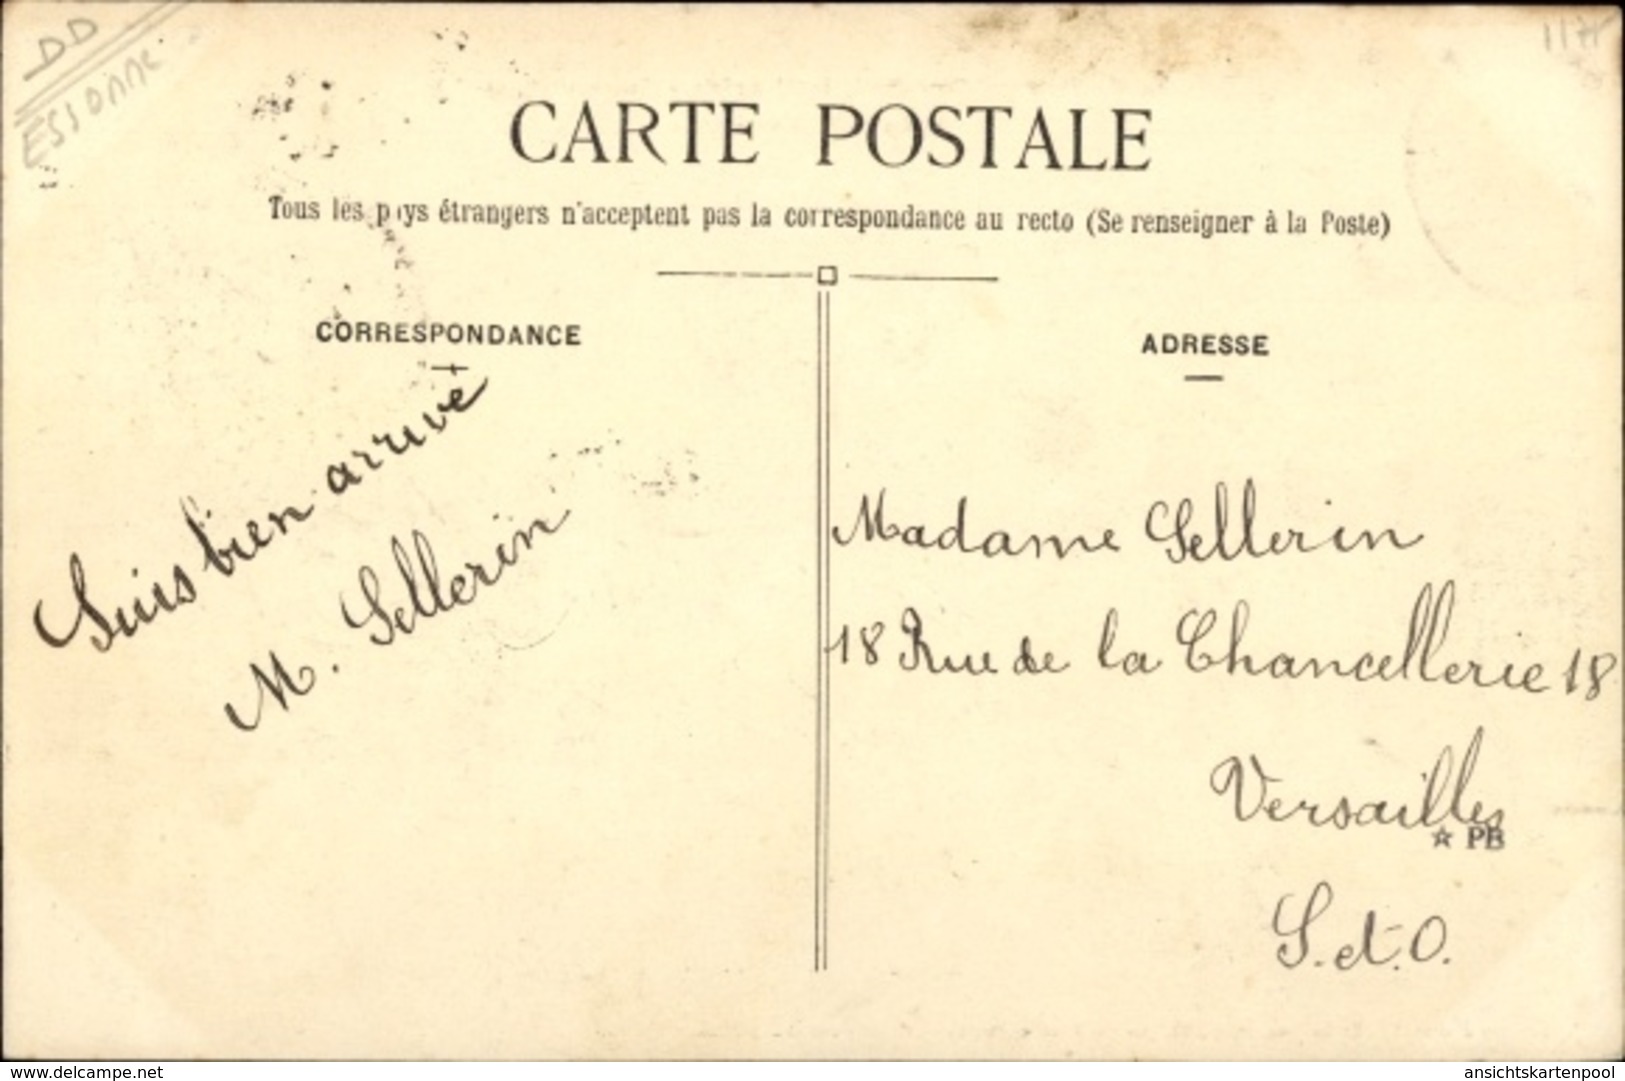 DD
ESSONNE
CARTE POSTALE
Tous les pays étrangers n'acceptent pas la correspondance au recto (Se renseigner à la Poste)
CORRESPONDANCE
Suis bien arrivé
M. Sellerin
ADRESSE
Madame Sellerin
18 Rue de la Chancellerie 18
Versailles
☆ PB
S. et. O.
www.delcampe.net
ansichtskartenpool